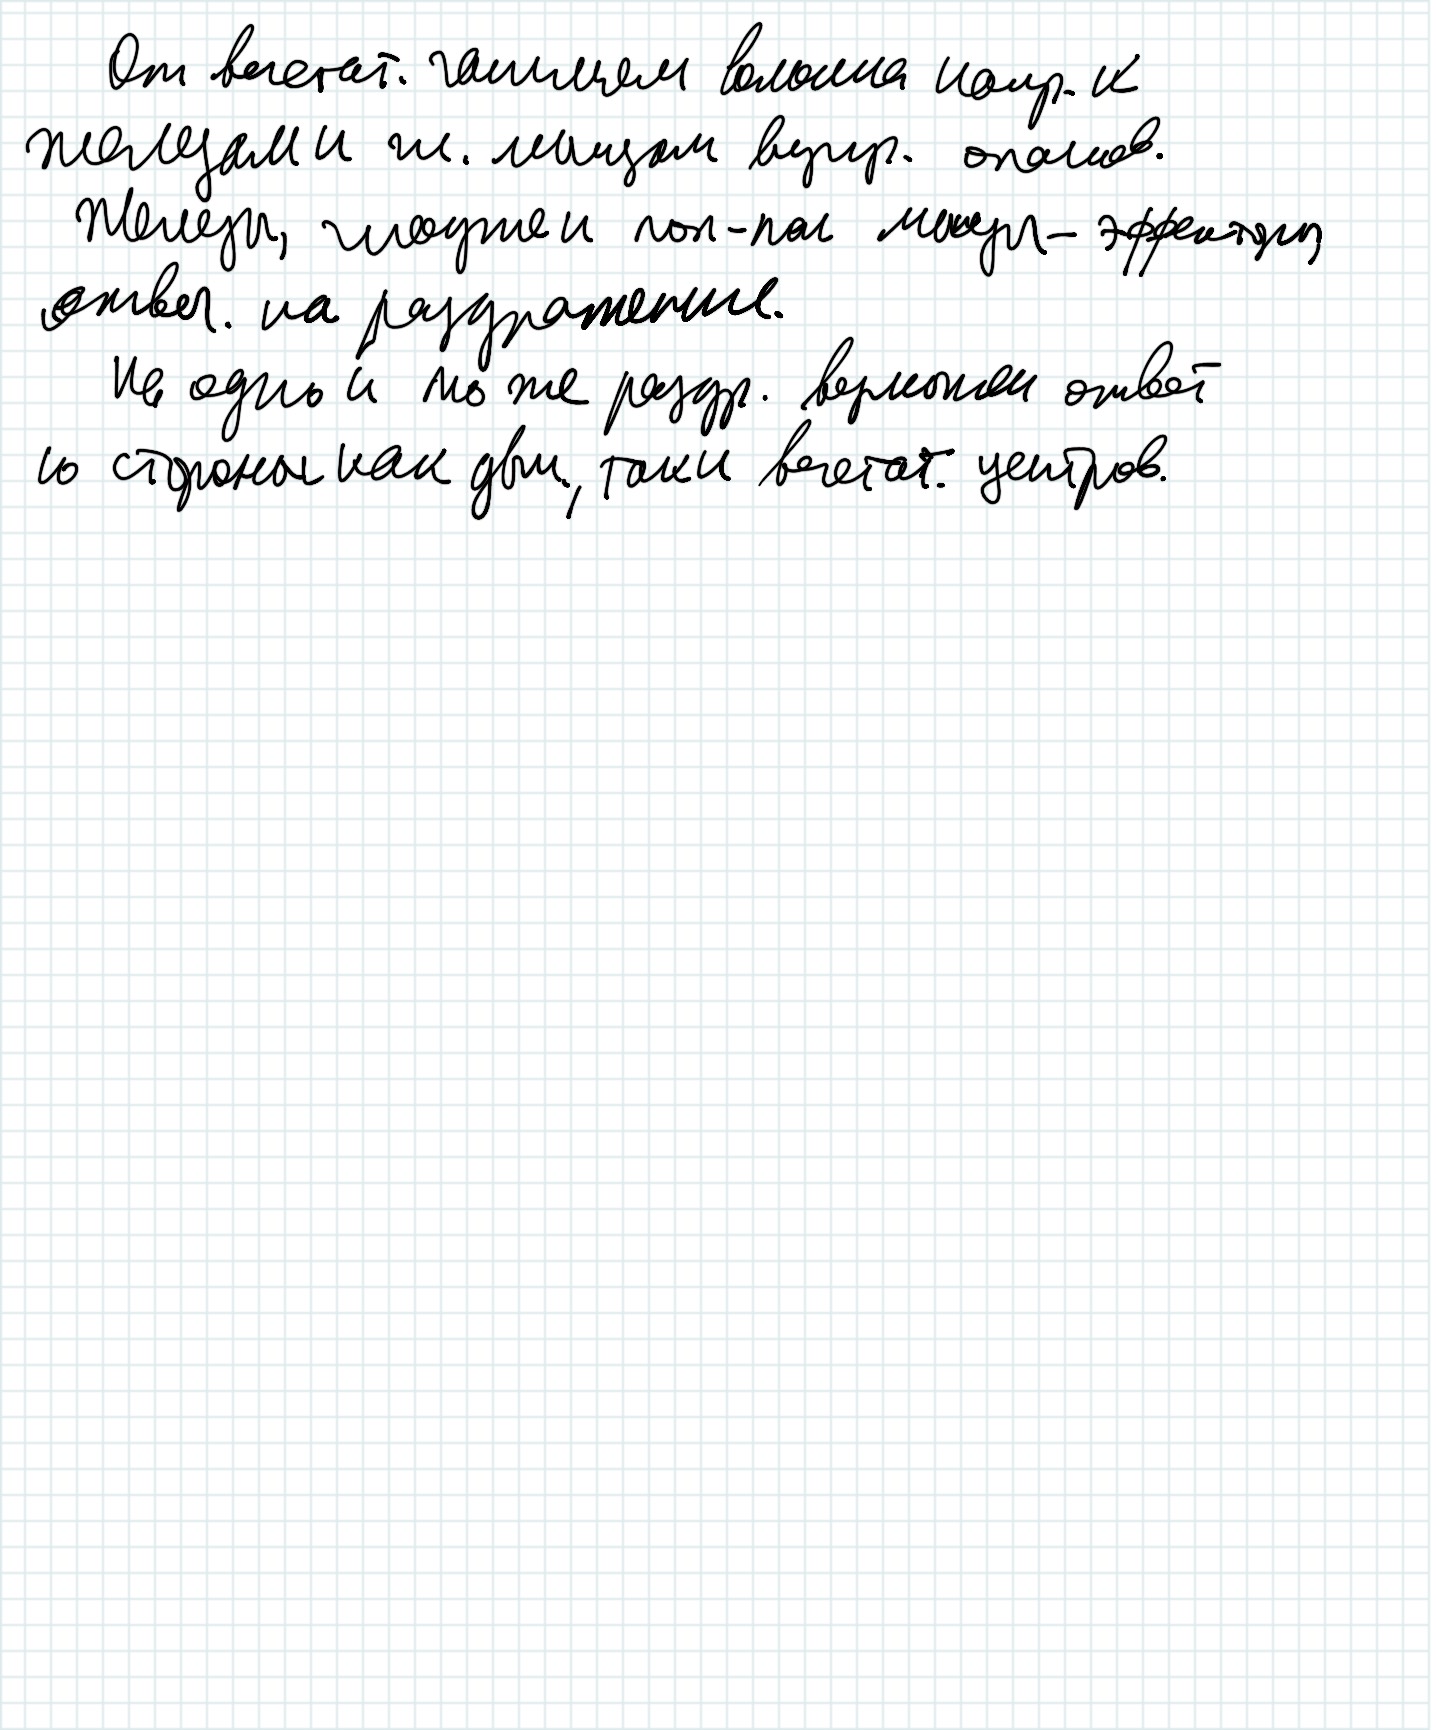 От вегетат. ганглием волокна напр. к
железам и гл. мышцам внутр. органов.
Железы, гладкие и поп-пол мышцы – эффекторы,
ответ. на раздражение.
На одно и то же раздр. возможен ответ
со стороны как двиг., так и вегетат. центров.